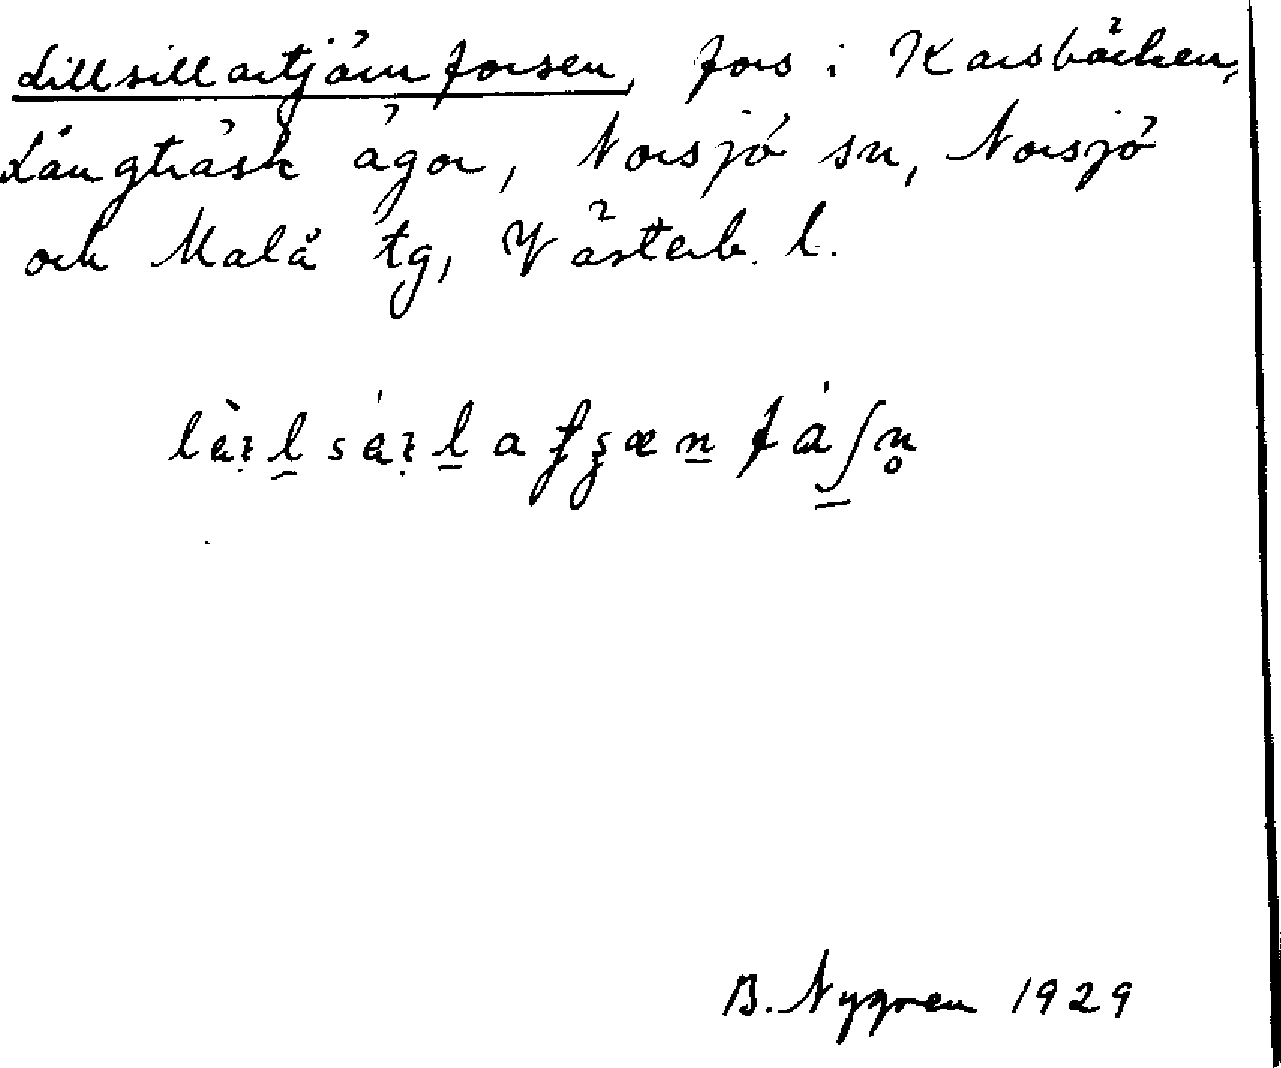 Lillsillartjärnforsen, fors i Karsbäcken,
Långträsk ägor, Norsjö sn, Norsjö
och Malå tg, Västerb. l.
B. Nygren 1929